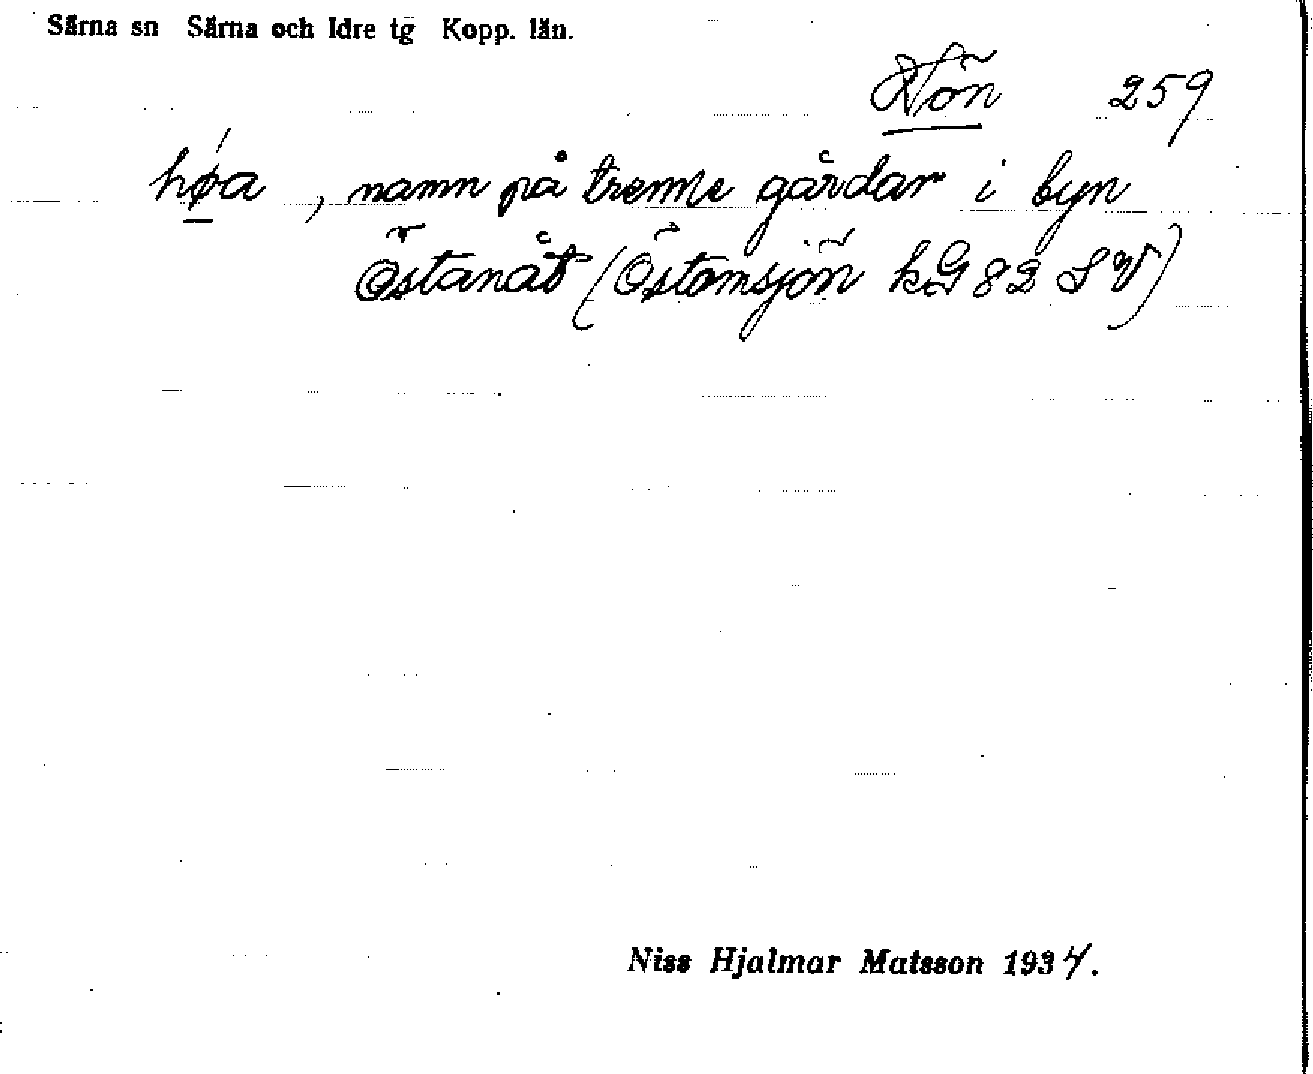 Särna sn Särna och Idre tg Kopp. län.
Hön 259
høa , namn på trenne gårdar i byn
Östanåt (Östomsjön kG 82 SV)
Niss Hjalmar Matsson 1934.